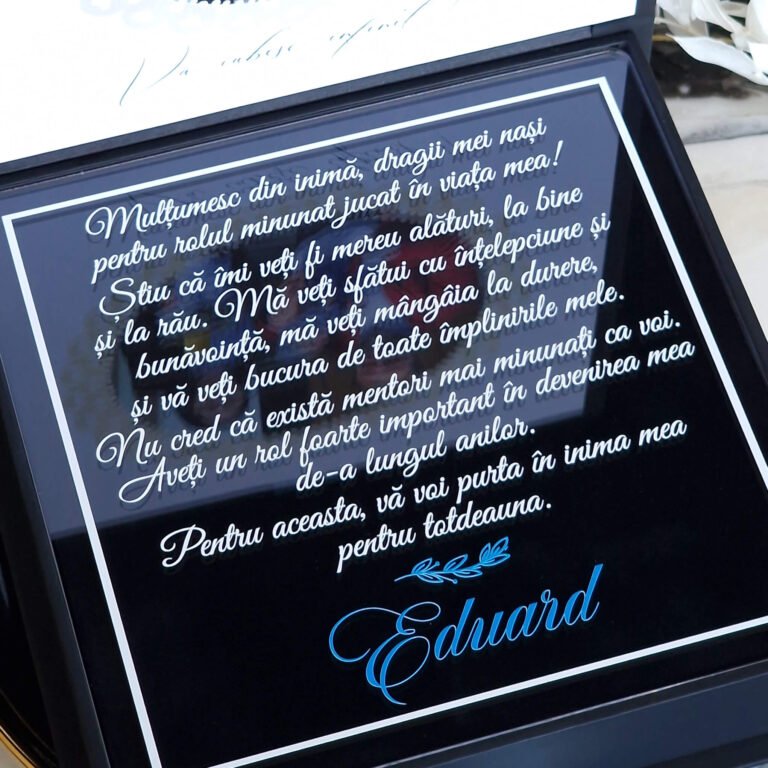 Vă iubesc infinit
Mulțumesc din inimă, dragii mei nași
pentru rolul minunat jucat în viața mea!
Știu că îmi veți fi mereu alături, la bine
și la rău. Mă veți sfătui cu înțelepciune și
bunăvoință, mă veți mângâia la durere,
și vă veți bucura de toate împlinirile mele.
Nu cred că există mentori mai minunați ca voi.
Aveți un rol foarte important în devenirea mea
de-a lungul anilor.
Pentru aceasta, vă voi purta în inima mea
pentru totdeauna.
Eduard